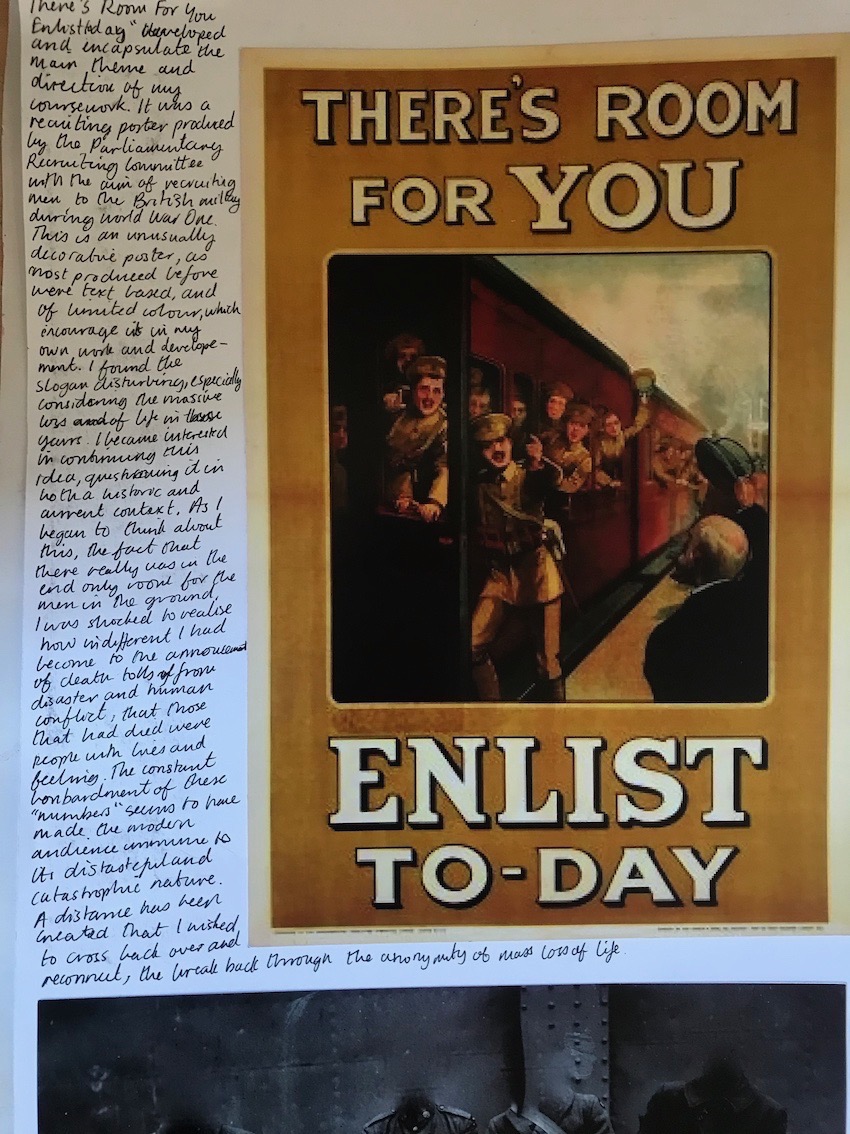 There's Room For You
Enlist today" developed
and encapsulate the
main theme and
direction of my
coursework. It was a
recruiting poster produced
by the Parliamentary
Recruiting Committee
with the aim of recruiting
men to the British military
during World War One.
This is an unusually
decorative poster, as
most produced before
were text based, and
of limited colour, which
encourage its in my
own work and develope-
ment. I found the
slogan disturbing, especially
considering the massive
loss of life in these
years. I became interested
in continuing this
idea, questioning it in
both a historic and
current context. As I
began to think about
this, the fact that
there really was in the
end only room for the
men in the ground,
I was shocked to realise
how indifferent I had
become to the announcement
of death tolls from
disaster and human
conflict, that those
that had died were
people with lives and
feelings. The constant
bombardment of these
"numbers" seems to have
made the modern
audience immune to
its distasteful and
catastrophic nature.
A distance has been
created that I wished
to cross back over and
reconnect, the break back through the anonymity of mass loss of life.
THERE'S ROOM
FOR YOU
ENLIST
TO-DAY